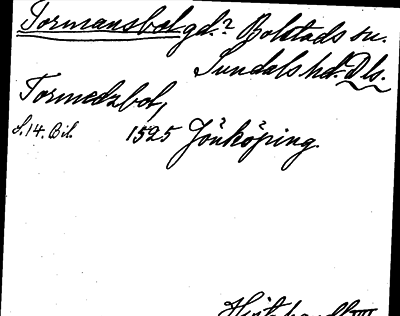 Tormansbol gd.? Bolstads sn.
Sundals hd. Dls.
Tormedzbol,
S. 14. Bil. 1525 Jönköping